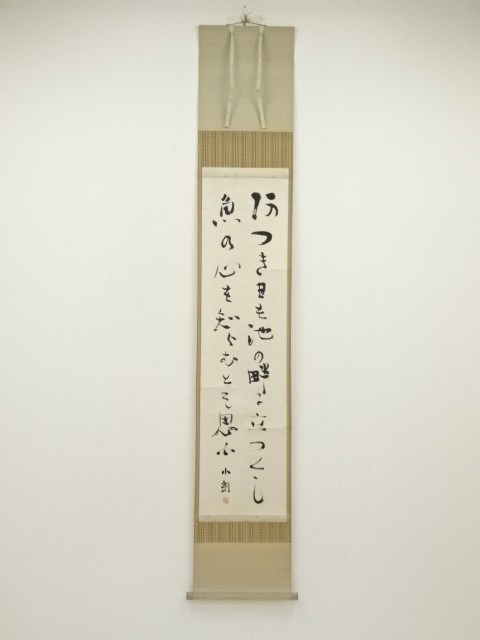 つき日を池の畔に立つくし
魚の心を知らむとそ思ふ
小剣